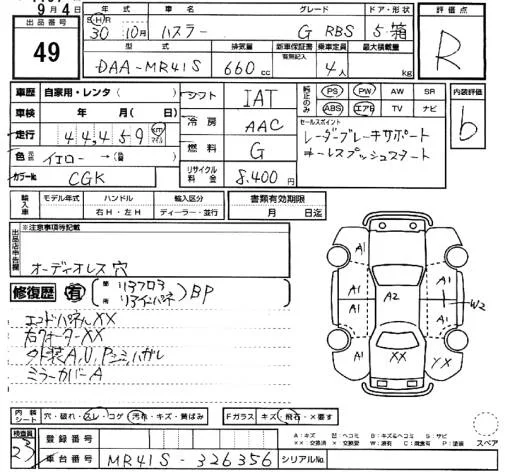 9月4日
出品番号 49
年式 車名 グレード ドア・形状
S・H・R 30年10月 ハスラー G RBS 5・箱
評価点 R
型式 排気量 新車保証書 乗車定員 最大積載量
有無記入
DAA-MR41S 660cc 4人 kg
車歴 自家用・レンタ( )
車検 年 月( 日)
走行 44,459 km マイル
色 元色 イエロー→(替)
カラーNo. CGK
シフト IAT
冷房 AAC
燃料 G
リサイクル料金 8,400円
純正のみ PS PW AW SR
ABS エアB TV ナビ
内装評価 b
セールスポイント
レーダーブレーキサポート
キーレスプッシュスタート
輸入車 モデル年式 ハンドル 輸入区分
右H・左H ディーラー・並行
書類有効期限
月 日迄
出品店申告欄 ※注意事項等記載
オーディオレス穴
修復歴 有 箇所 リアフロア
リアインパネ BP
エンドパネルXX
右クォーターXX
外装A,U,P,シミ,ハガレ
ミラーカバーA
A1 A1 A1 A1 A1 A1 A2 W2 XX YX
内装シート 穴・破れ・スレ・コゲ 汚れ・キズ・黄ばみ
Fガラス キズ 飛石・×要す
検査員 23
登録番号
車台番号 MR41S-326356 シリアルNo.
A:キズ B:キズ&ヘコミ S:サビ
XX:交換済 X:交換要 W:波有 C:腐食有 P:塗装
スペア